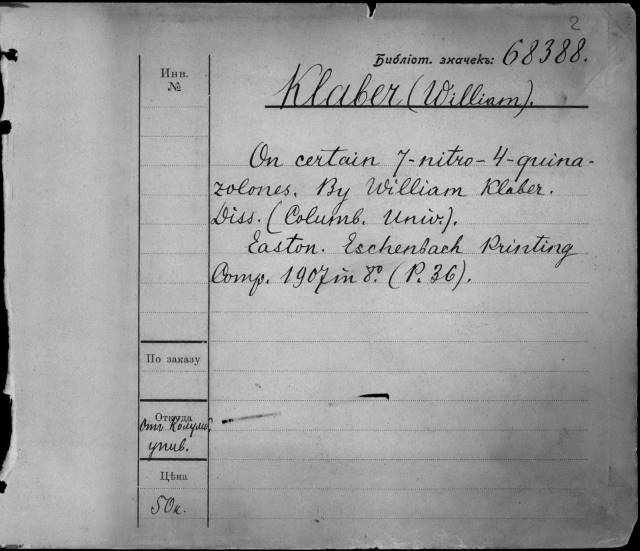 2
Библіот. значекъ: 68388.
Инв.
№
Klaber (William).
On certain 7-nitro-4-quina-
zolones. By William Klaber.
Diss. (Columb. Univ.).
Easton. Eschenbach Printing
Comp. 1907 in 8º. (P. 36).
По заказу
Откуда
Отъ Колумб.
унив.
Цѣна
50к.